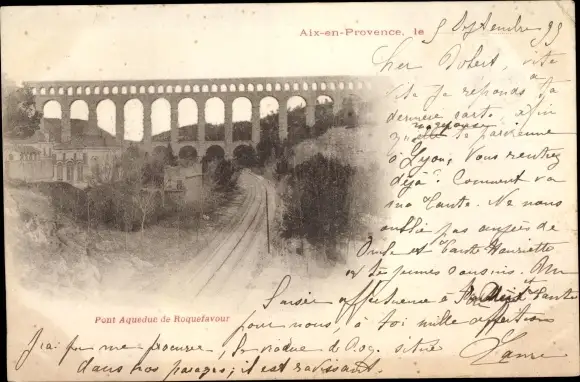 Aix-en-Provence, le 5 Septembre 99
Cher Robert, vite
vite je réponds à ta
dernière carte, afin
que ma réponse te parvienne
à Lyon, Vous rentrez
déjà? Comment va
ma Tante. Ne nous
oublie pas auprès de
Oncle et Tante Henriette
et les jeunes cousins. Un
baiser affectueux à Tante
pour nous, à toi mille affections
J'ai pu me procurer, le viaduc de Roq. située
dans nos parages; il est ravissant.
Pont Aqueduc de Roquefavour